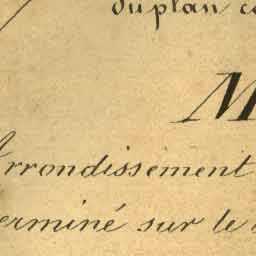 Du plan c
M
Arrondissement
erminé sur le